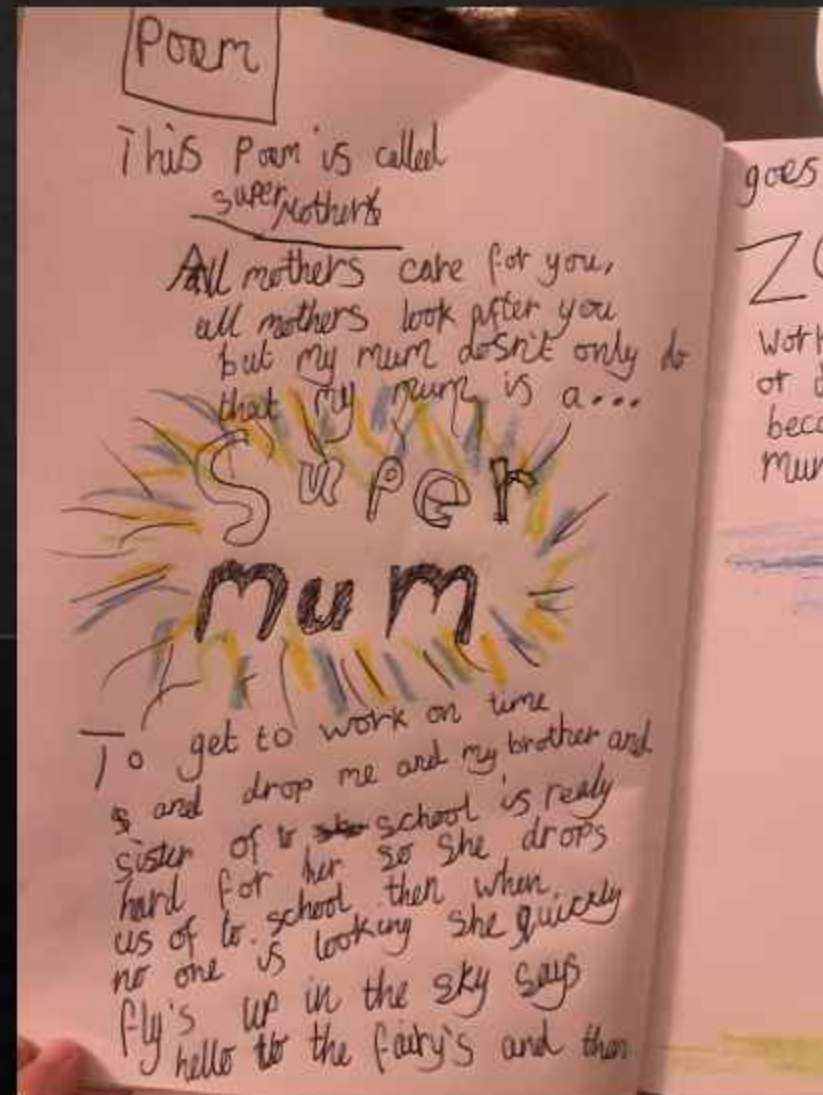 Poem
This Poem is called
super Mothers
All mothers care for you,
all mothers look after you
but my mum dosn't only do
that my mum is a...
Super
mum
To get to work on time
and drop me and my brother and
sister of to school is realy
hard for her so she drops
us of to school then when
no one is looking she quickly
fly's up in the sky says
hello to the fairy's and then
goes
work
or
mum